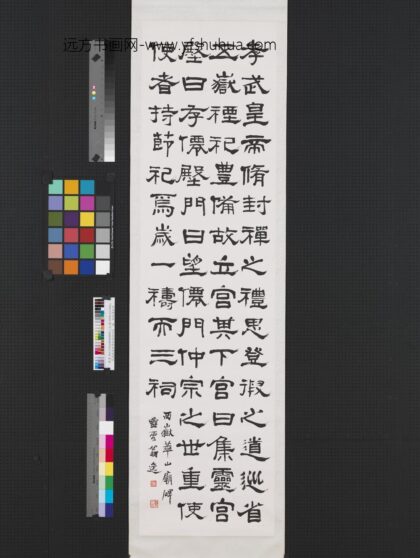 远方书画网-www.yfshuhua.com
孝武皇帝脩封禪之禮思登徦之道巡省
五嶽禋祀豐備故立宮其下宮曰集靈宮
壂曰存僊壂門曰望僊門仲宗之世重使
使者持節祀焉歲一禱而三祠
西嶽華山廟碑